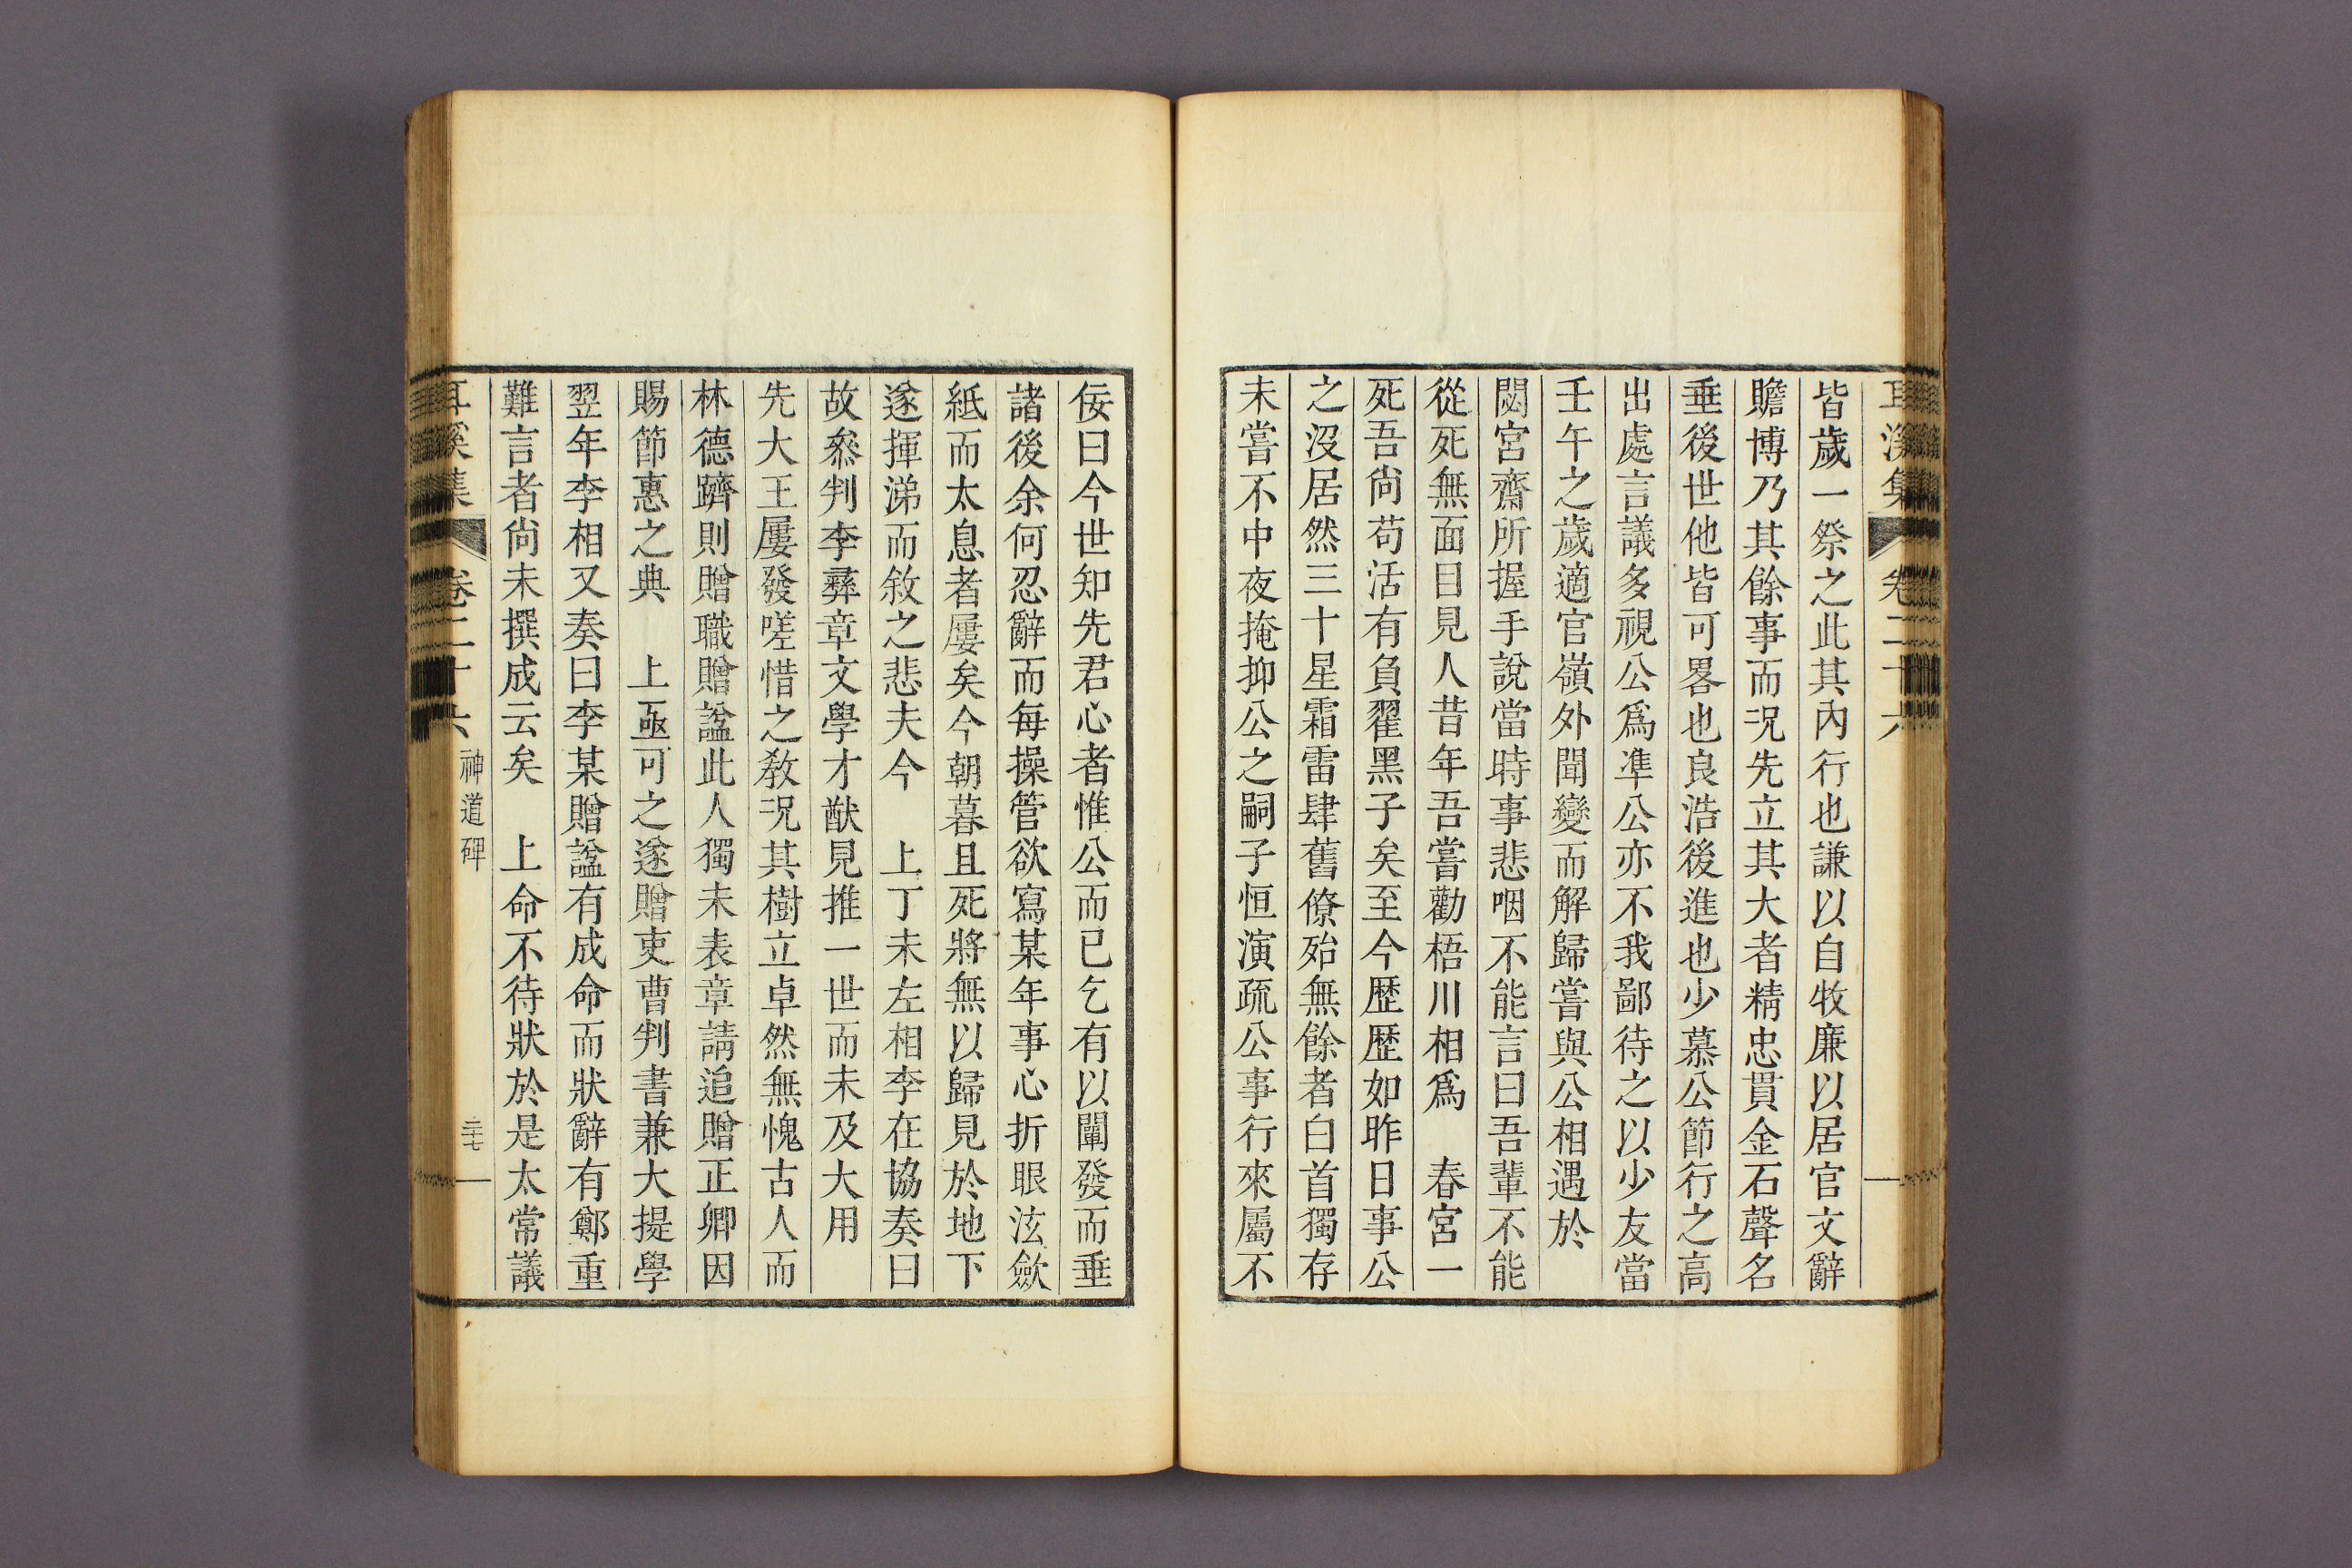 耳溪集 卷二十六
皆歲一祭之此其內行也謙以自牧廉以居官文辭
贍博乃其餘事而况先立其大者精忠貫金石聲名
垂後世他皆可畧也良浩後進也少慕公節行之高
出處言議多視公爲準公亦不我鄙待之以少友當
壬午之歲適官嶺外聞變而解歸嘗與公相遇於
閟宮齋所握手說當時事悲咽不能言曰吾輩不能
從死無面目見人昔年吾嘗勸梧川相爲 春宮一
死吾尙苟活有負翟黑子矣至今歷歷如昨日事公
之沒居然三十星霜雷肆舊僚殆無餘者白首獨存
未嘗不中夜掩抑公之嗣子恒演疏公事行來屬不
佞曰今世知先君心者惟公而已乞有以闡發而垂
諸後余何忍辭而每操管欲寫某年事心折眼泫斂
紙而太息者屢矣今朝暮且死將無以歸見於地下
遂揮涕而敘之悲夫今 上丁未左相李在協奏曰
故叅判李彛章文學才猷見推一世而未及大用
先大王屢發嗟惜之敎况其樹立卓然無愧古人而
林德躋則贈職贈諡此人獨未表章請追贈正卿因
賜節惠之典 上亟可之遂贈吏曹判書兼大提學
翌年李相又奏曰李某贈諡有成命而狀辭有鄭重
難言者尙未撰成云矣 上命不待狀於是太常議
耳溪集 卷二十六 神道碑 三十七